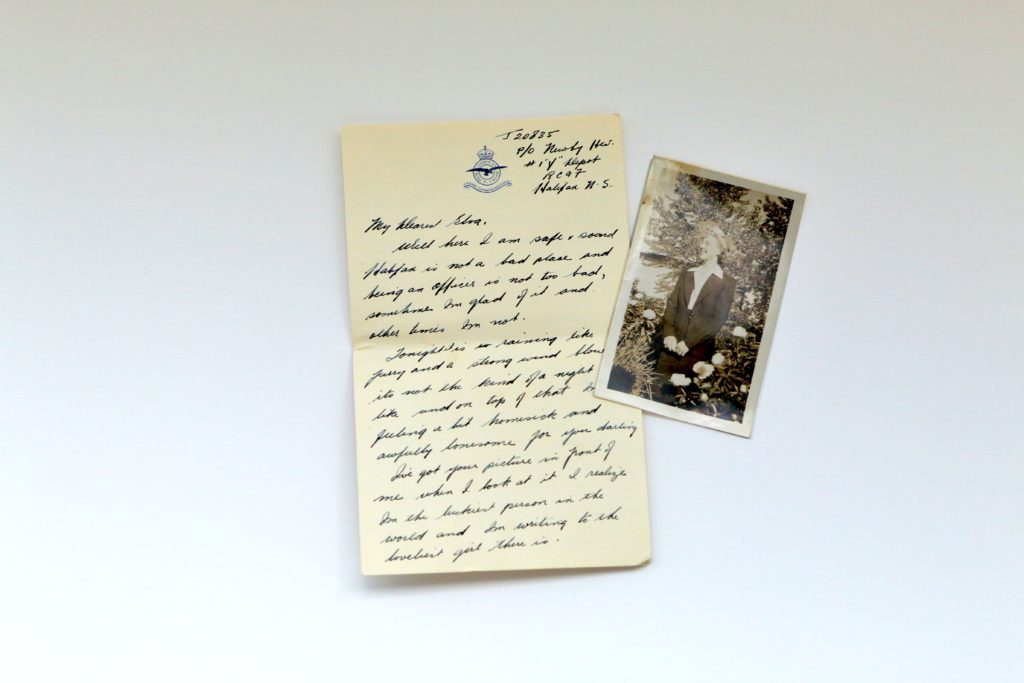 J20835
P/O Newby H.W.
#1 "Y" Depot
RCAF
Halifax N.S.
My Dearest Elva,
Well here I am safe & sound
Halifax is not a bad place and
being an officer is not too bad,
sometimes Im glad of it and
other times Im not.
Tonight is raining like
furry and a strong wind blow
its not the kind of a night I
like and on top of that Im
feeling a bit homesick and
awfully lonesome for you darling
I've got your picture in front of
me when I look at it I realize
Im the luckiest person in the
world and Im writing to the
loveliest girl there is.